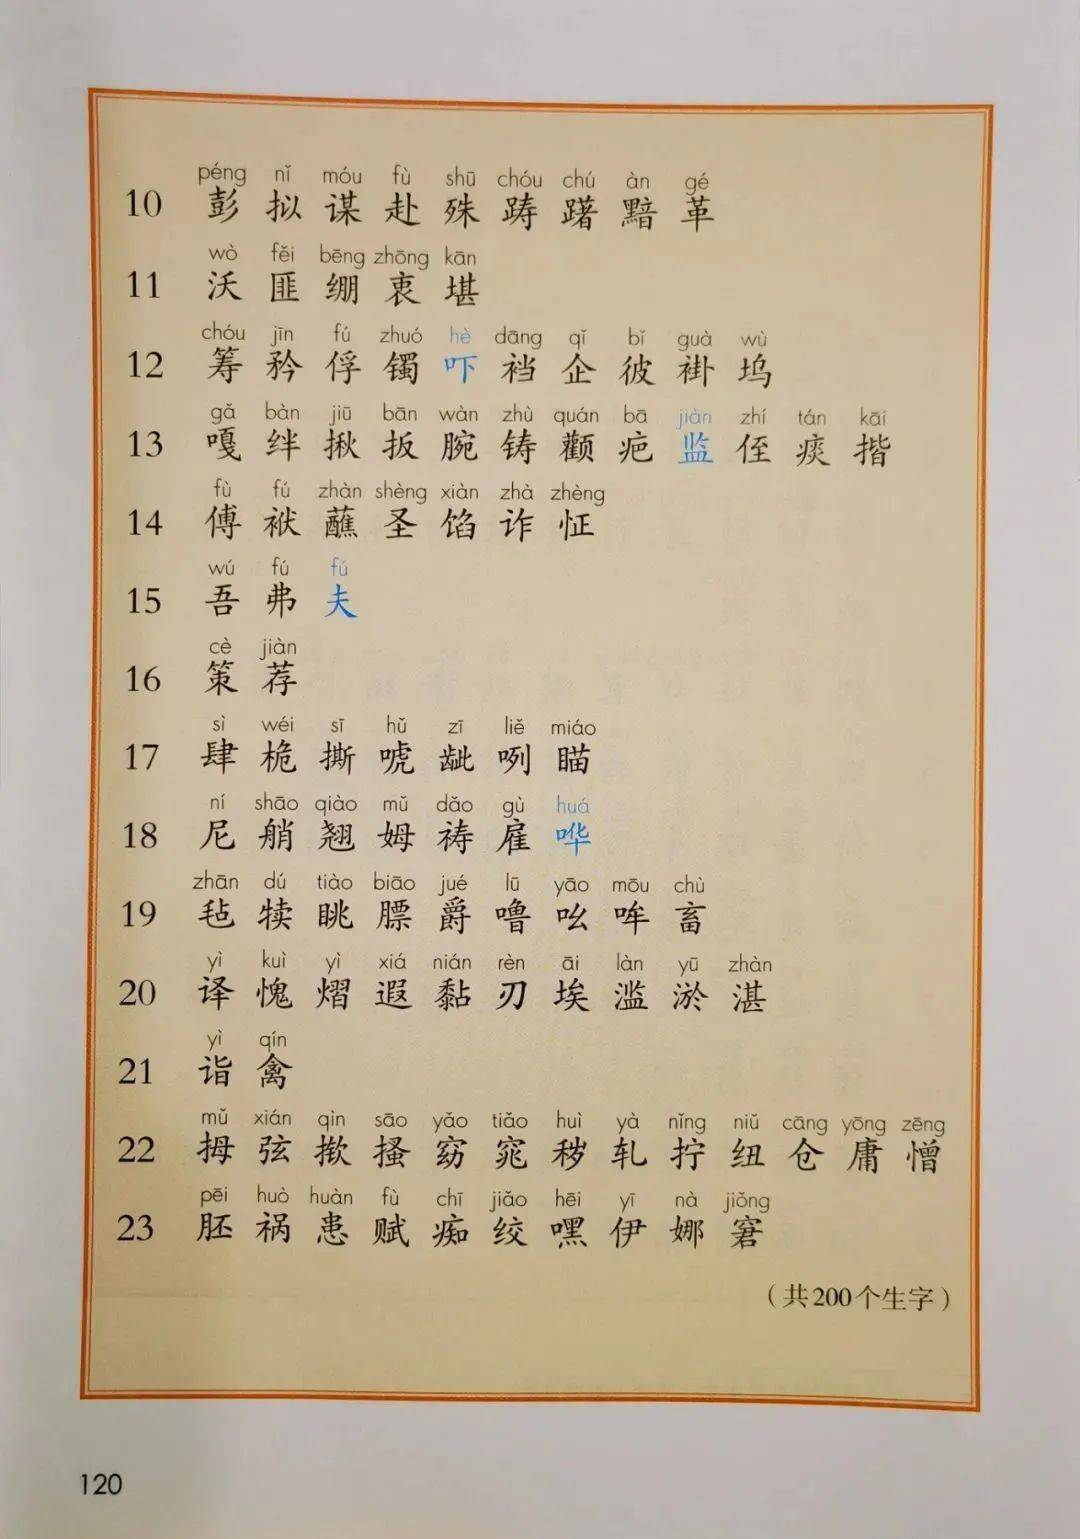 péng nǐ móu fù shū chóu chú àn gé
10 彭 拟 谋 赴 殊 踌 躇 黯 革
wò fěi bēng zhōng kān
11 沃 匪 绷 衷 堪
chóu jīn fú zhuó hè dāng qǐ bǐ guà wù
12 筹 矜 俘 镯 吓 裆 企 彼 褂 坞
gǎ bàn jiū bān wàn zhù quán bā jiàn zhí tán kāi
13 嘎 绊 揪 扳 腕 铸 颧 疤 监 侄 痰 揩
fù fú zhàn shèng xiàn zhà zhèng
14 傅 袱 蘸 圣 馅 诈 怔
wú fú fú
15 吾 弗 夫
cè jiàn
16 策 荐
sì wéi sī hǔ zī liě miáo
17 肆 桅 撕 唬 龇 咧 瞄
ní shāo qiào mǔ dǎo gù huá
18 尼 艄 翘 姆 祷 雇 哗
zhān dú tiào biāo jué lū yāo mōu chù
19 毡 犊 眺 膘 爵 噜 吆 哞 畜
yì kuì yì xiá nián rèn āi làn yū zhàn
20 译 愧 熠 遐 黏 刃 埃 滥 淤 湛
yì qín
21 诣 禽
mǔ xián qìn sāo yǎo tiǎo huì yà nǐng niǔ cāng yōng zēng
22 拇 弦 揿 搔 窈 窕 秽 轧 拧 纽 仓 庸 憎
pēi huò huàn fù chī jiǎo hēi yī nà jiǒng
23 胚 祸 患 赋 痴 绞 嘿 伊 娜 窘
（共200个生字）
120